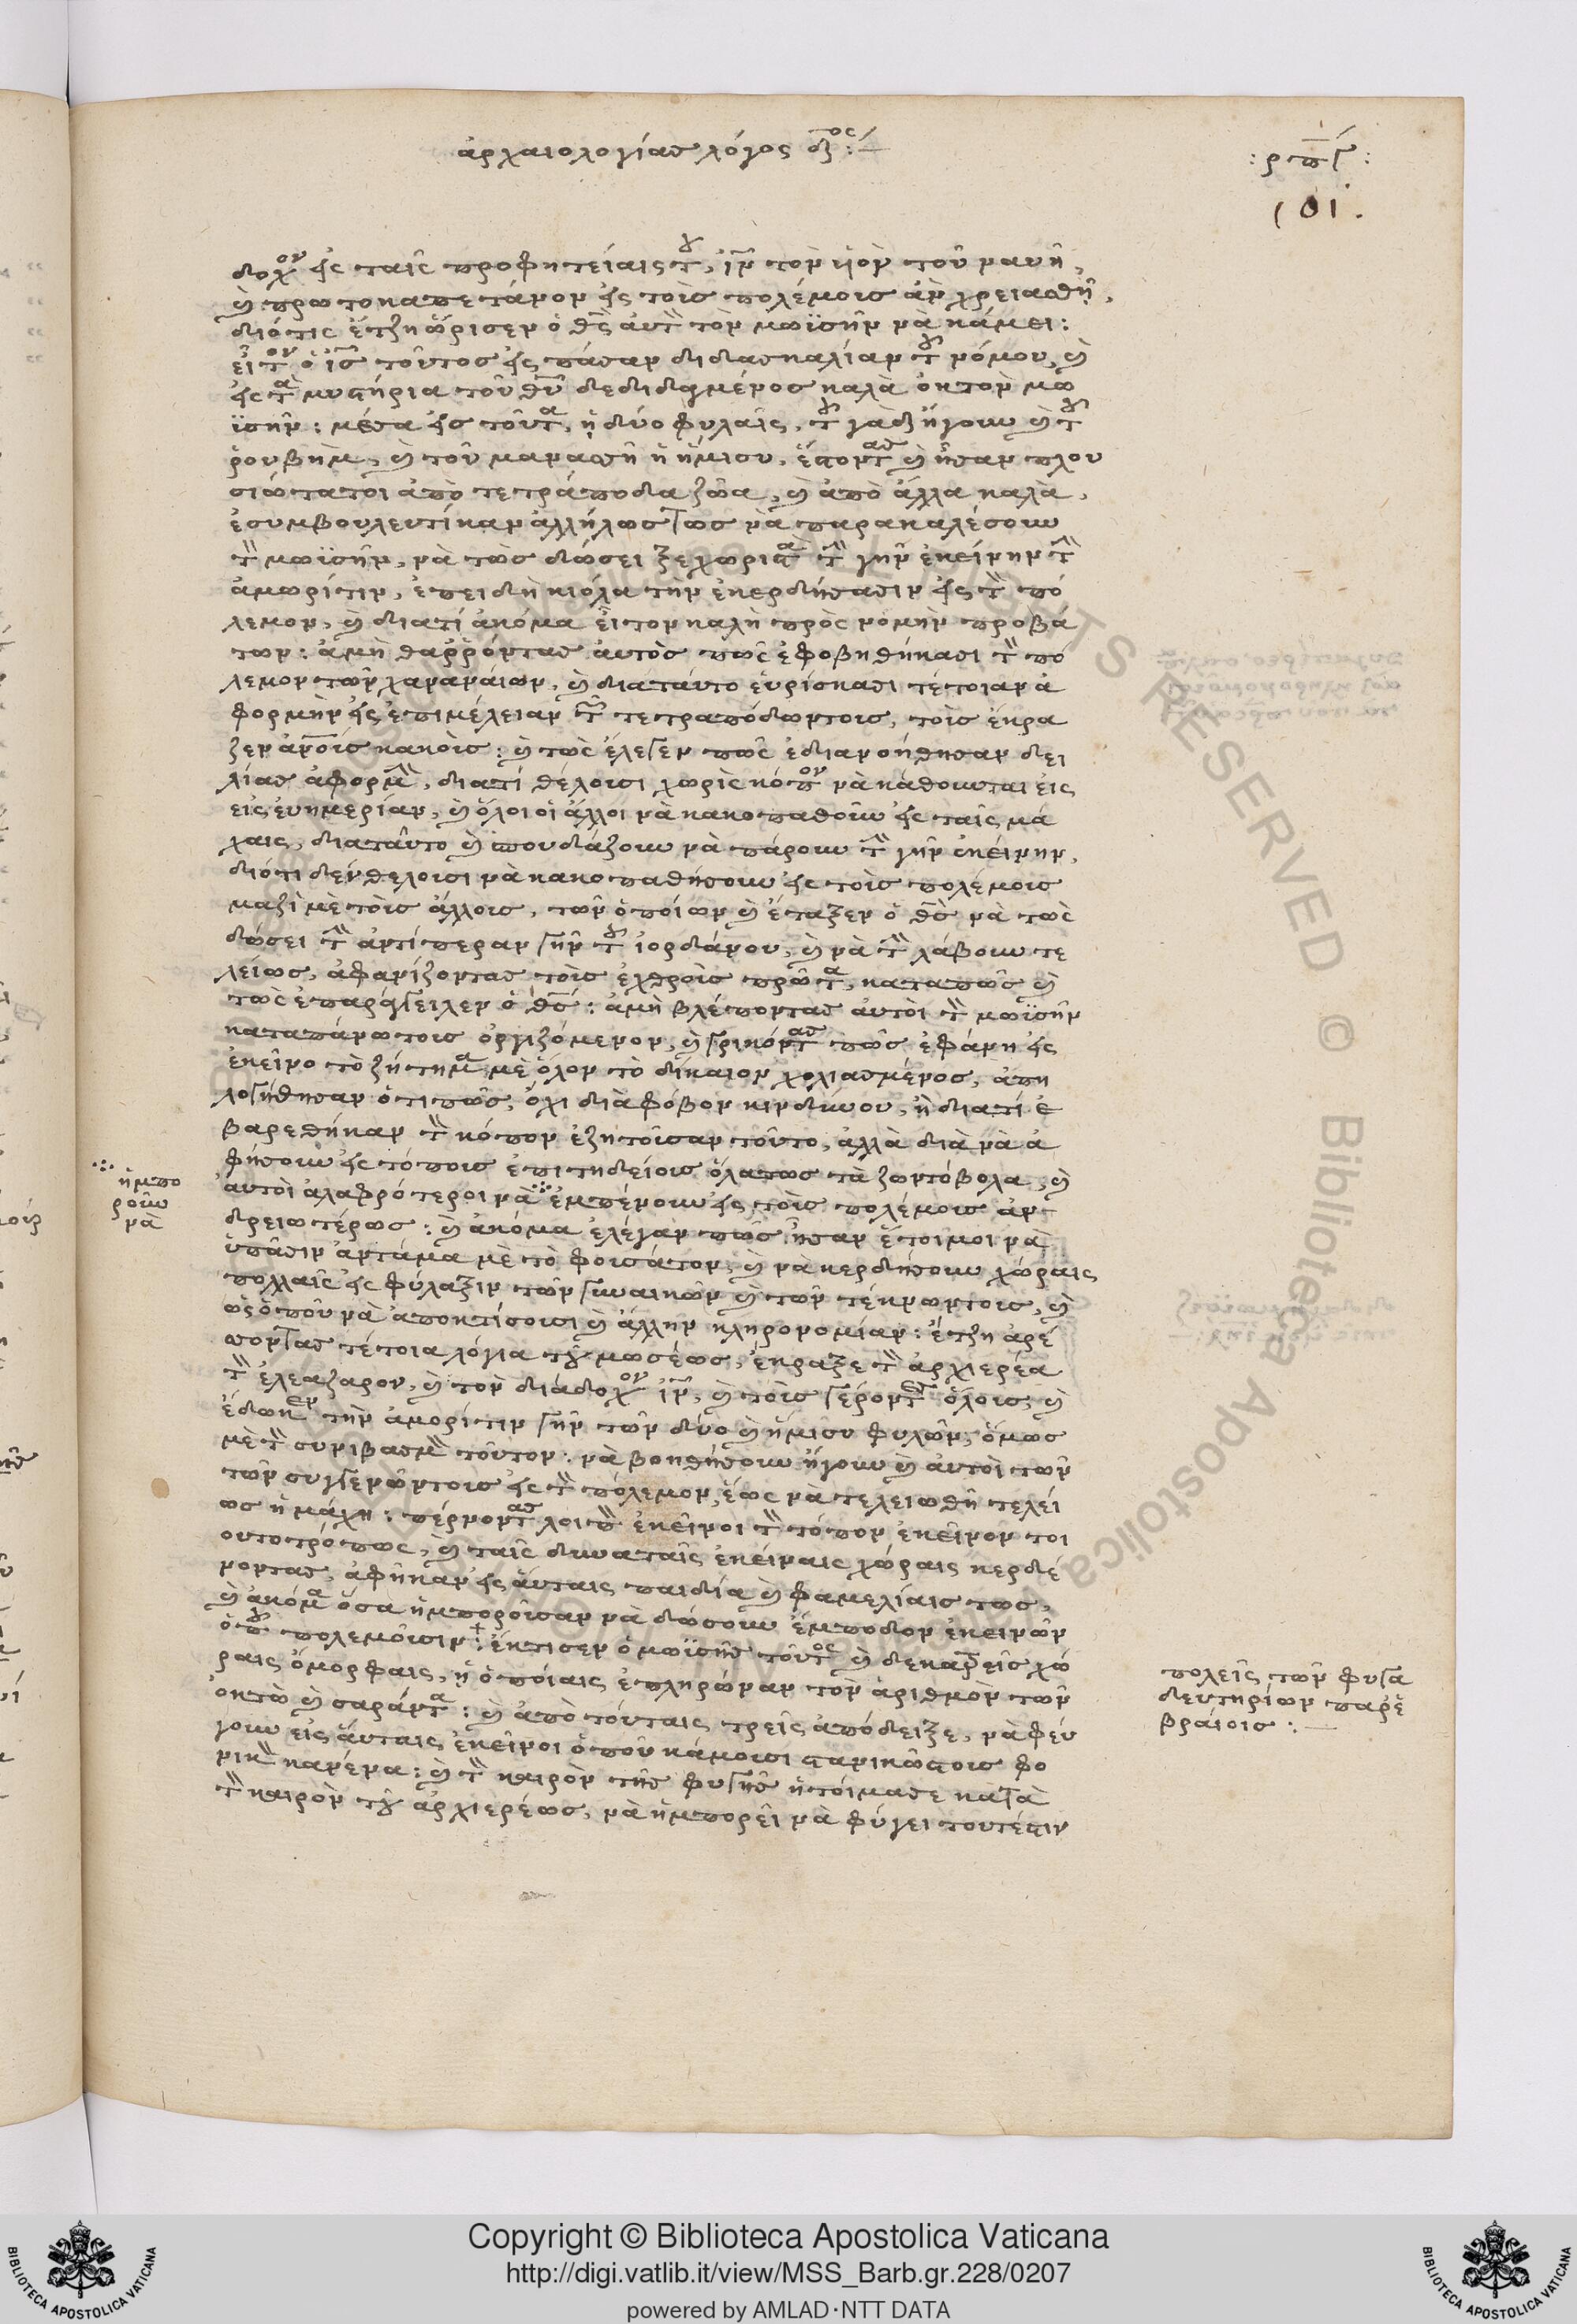 ἀρχαιολογίας λόγος δ̅ος:
:ρπγ:
101.
δοχον εἰς ταῖς προφητείαις του, ἰην τὸν ὑιὸν τοῦ ναυῆ,
καὶ πρωτοκαπετάνον εἰς τοὺς πολέμους ἂν χρειασθῆ,
διότις ἔτζη ὥρισεν ὁ θς αὐτὸν τὸν μωϋσῆν νὰ κάμει:
εἶτον ὁ ἰης τοῦτος εἰς πάσαν διδασκαλίαν τοῦ νόμου, καὶ
εἰς τὰ μυστήρια τοῦ θυ δεδιδαγμένος καλὰ ἐκ τὸν μω
ϋσῆν: μέσα εἰς τοῦτα, ἡ δύο φυλαῖς, τοῦ γὰδ ἤγουν καὶ τοῦ
ῥουβὴμ, καὶ τοῦ μανασῆ ἡ ἥμισυ, ἔστοντας καὶ ἦσαν πλου
σιώτατοι ἀπὸ τετράποδα ζῶα, καὶ ἀπὸ ἄλλα καλὰ,
ἐσυμβουλευτίκαν ἀλλήλως τως νὰ παρακαλέσουν
τὸν μωϋσῆν, νὰ τὼς δώσει ξεχωριστὰ τὴν γῆν ἐκείνην τὴν
ἀμωρίτιν, ἐπειδὴ κιόλα τὴν ἐκερδήσασιν εἰς τὸν πό
λεμον, καὶ διατί ἀκόμα εἶτον καλὴ πρὸς νομὴν προβά
των: ἀμὴ θαῤῥόντας αὐτὸς πῶς ἐφοβηθήκασι τὸν πό
λεμον τῶν χαναναίων, καὶ διαταύτο εὑρίσκασι τέτοιαν ἀ
φορμὴν εἰς ἐπιμέλειαν τῶν τετραπόδωντους, τοὺς ἔκρα
ζεν ἀνοὺς κακοὺς: καὶ τὼς ἔλεγεν πῶς ἐδιανοήθησαν δει
λίας ἀφορμὴν, διατί θέλουσι χωρὶς κόπον νὰ κάθουνται εἰς
εἰς εὐημερίαν, καὶ ὅλοι οἱ ἄλλοι νὰ κακοπαθοῦν εἰς ταῖς μά
χαις, διαταῦτο καὶ σπουδάζουν νὰ πάρουν τὴν γῆν ἐκείνην,
διότι δὲν θέλουσι νὰ κακοπαθήσουν εἰς τοὺς πολέμους
μαζὶ μὲ τοὺς ἄλλους, τῶν ὁποίων καὶ ἔταξεν ὁ θς νὰ τὼς
δώσει τὴν ἀντίπεραν γῆν τοῦ ἰορδάνου, καὶ νὰ τὴν λάβουν τε
λείως, ἀφανίζοντας τοὺς ἐχθροὺς πρῶτα, καταπῶς καὶ
τὼς ἐπαράγγειλεν ὁ θς: ἀμὴ βλέποντας αὐτοὶ τὸν μωϋσῆν
καταπάνωτους ὀργιζόμενον, καὶ γρικόντας πῶς ἐφάνη εἰς
ἐκεῖνο τὸ ζήτημα μὲ ὅλον τὸ δίκαιον χολιασμένος, ἀπη
λογήθησαν ὅτι πῶς, ὄχι διὰ φόβον κινδύνου, ἢ διατί ἐ
βαρεθήκαν τὸν κόπον ἐζητοῦσαν τοῦτο, ἀλλὰ διὰ νὰ ἀ
φήσουν εἰς τόπους ἐπιτηδείους ὅλατως τὰ ζωντόβολα, καὶ
αὐτοὶ ἀλαφρότεροι νὰ ἐμπένουν εἰς τοὺς πολέμους ἀν
δρειωτέρως: καὶ ἀκόμα ἐλέγαν πῶς ἦσαν ἕτοιμοι νὰ
ὑπᾶσιν ἀντάμα μὲ τὸ φουσάτον, καὶ νὰ κερδήσουν χώραις
πολλαῖς εἰς φύλαξιν τῶν γυναικῶν καὶ τῶν τέκνωντους, καὶ
ὡς ὁποῦ νὰ ἀποκτίσουσι καὶ ἄλλην κληρονομίαν: ἔτζη ἀρέ
σονγας τέτοια λόγια τοῦ μωσέως, ἔκραξε τὸν ἀρχιερέα
τὸν ἐλεάζαρον, καὶ τὸν διάδοχον ἰην, καὶ τοὺς γέροντες ὅλους, καὶ
ἔδωκεν τὴν ἀμορίτιν γῆν τῶν δύο καὶ ἥμισυ φυλῶν, ὅμως
μὲ τὸν συνιβασμὸν τοῦτον: νὰ βοηθήσουν ἤγουν καὶ αὐτοὶ τῶν
τῶν συγγενῶντους εἰς τὸν πόλεμον, ἕως νὰ τελειωθῆ τελεί
ως ἡ μάχη: πέρνοντας λοιπὸν ἐκεῖνοι τὸν τόπον ἐκεῖνον τοι
ουτοτρόπως, καὶ ταῖς δυναταῖς ἐκείναις χώραις κερδέ
νοντας, ἀφῆκαν εἰς αὔταις παιδία καὶ φαμελίαις τως,
καὶ ἀκόμα ὅσα ἠμποροῦσαν νὰ δώσουν ἔμποδον ἐκεινῶν
ὁποῦ πολεμοῦσιν: ἔκτισεν ὁ μωϋσῆς τοῦτος καὶ δεκατρεῖς χώ
ραις ὄμορφαις, ᾑ ὁποίαις ἐπληρώναν τὸν ἀριθμὸν τῶν
ὀκτὼ καὶ σαράντα: καὶ ἀπὸ τούταις τρεῖς ἀπόδειξε, νὰ φεύ
γουν εἰς αὔταις ἐκεῖνοι ὁποῦ κάμουσι στανικῶςτους φο
νικὸν κανένα: καὶ τὸν καιρὸν τῆς φυγῆς ἡτοίμασε κατὰ
τὸν καιρὸν τοῦ ἀρχιερέως, νὰ ἠμπορεῖ νὰ φύγει τουτέστιν
ἠμπο
ροῦν
νὰ
πολεῖς τῶν φυγα
δευτηρίων παρἑ
βραίοις:
Copyright © Biblioteca Apostolica Vaticana
http://digi.vatlib.it/view/MSS_Barb.gr.228/0207
powered by AMLAD·NTT DATA
BIBLIOTECA APOSTOLICA VATICANA
BIBLIOTECA APOSTOLICA VATICANA